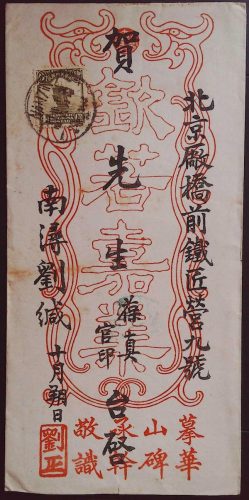 北京廠橋前鐵匠營九號
賀
先生
葆真
官印
台啓
南潯劉緘
十月朔日
欽若嘉業
摹華
山碑
承幹
敬識